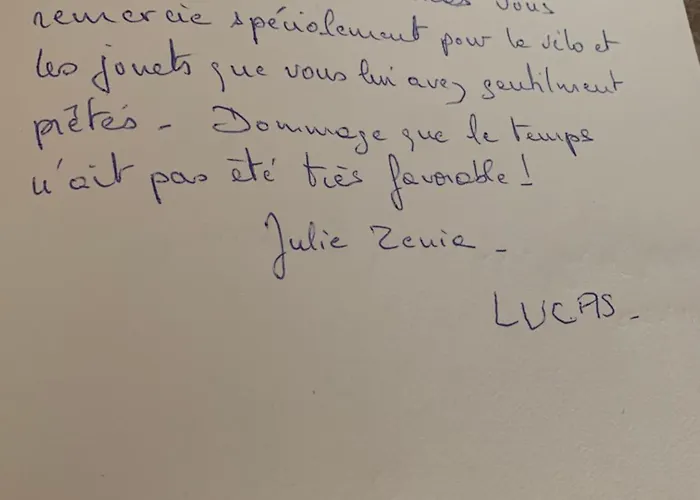 vous
remercie spécialement pour le vélo et
les jouets que vous lui avez gentilment
prêtés - Dommage que le temps
n'ait pas été très favorable !
Julie Zenia -
LUCAS -